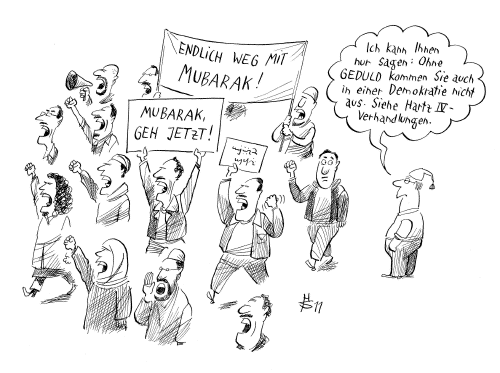 ENDLICH WEG MIT
MUBARAK!
MUBARAK,
GEH JETZT!
Ich kann Ihnen
nur sagen: Ohne
GEDULD kommen Sie auch
in einer Demokratie nicht
aus. Siehe Hartz IV-
Verhandlungen.
11